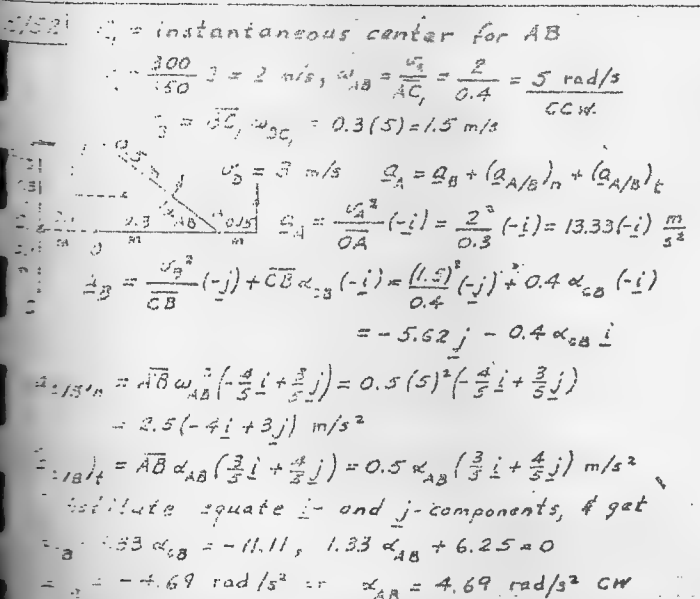 = instantaneous center for AB
300/150 3 = 2 m/s, ω_AB = v_A/AC₁ = 2/0.4 = 5 rad/s CCW.
= BC₁ ω_BC₁ = 0.3(5) = 1.5 m/s
v_D = 3 m/s a_A = a_B + (a_A/B)_n + (a_A/B)_t
α_AB 0.15 m
a_A = v_A²/OA (-i) = 2²/0.3 (-i) = 13.33(-i) m/s²
a_B = v_B²/CB (-j) + CB α_CB (-i) = (1.5)²/0.4 (-j) + 0.4 α_CB (-i)
= -5.62 j - 0.4 α_CB i
= AB ω_AB² (-4/5 i + 3/5 j) = 0.5(5)² (-4/5 i + 3/5 j)
= 2.5(-4i + 3j) m/s²
= AB α_AB (3/5 i + 4/5 j) = 0.5 α_AB (3/5 i + 4/5 j) m/s²
equate i- and j-components, & get
α_CB = -11.11, 1.33 α_AB + 6.25 = 0
= -4.69 rad/s² or α_AB = 4.69 rad/s² CW